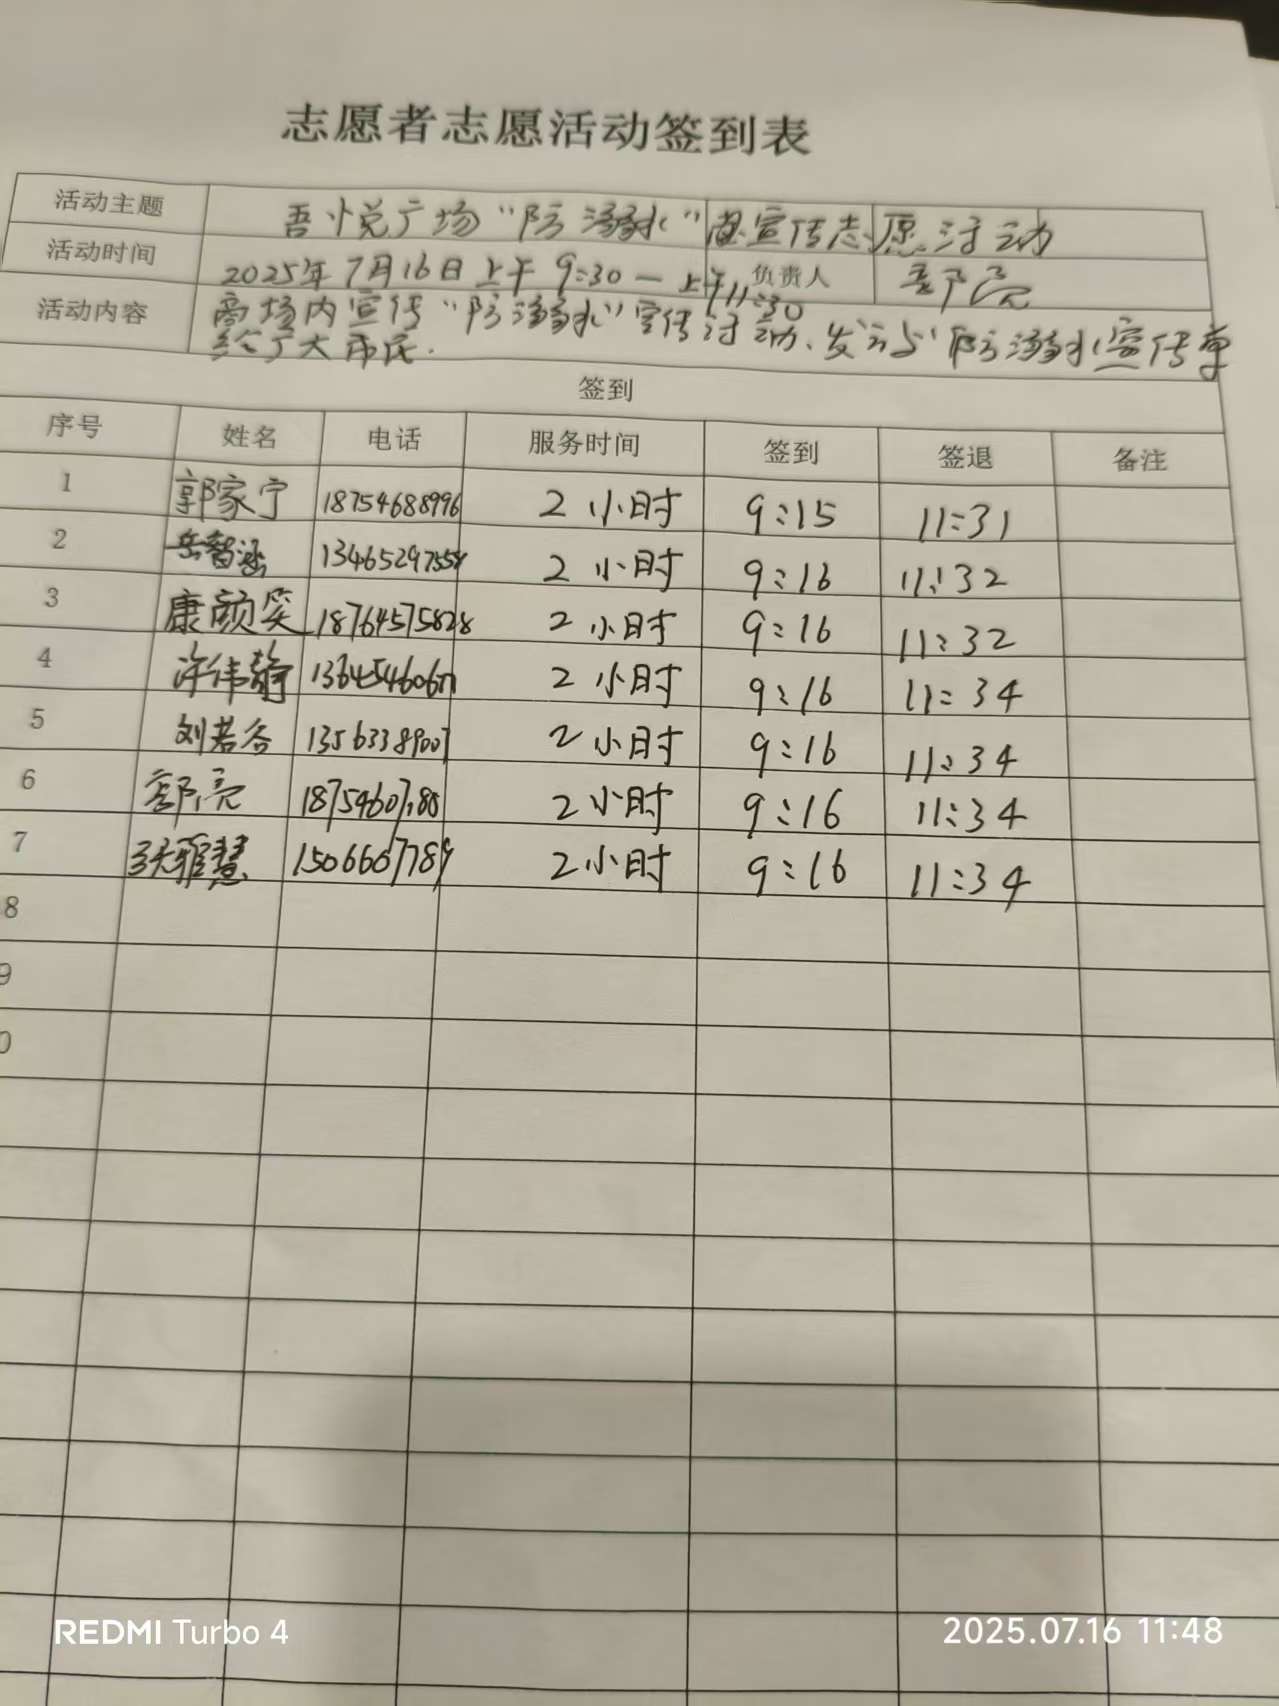 志愿者志愿活动签到表
活动主题 吾悦广场“防溺水”宣传志愿活动
活动时间 2025年7月16日上午9:30—上午11:30 负责人
活动内容 商场内宣传“防溺水”宣传活动、发放“防溺水宣传单
给广大市民.
签到
序号 姓名 电话 服务时间 签到 签退 备注
1 郭家宁 18754688996 2小时 9:15 11:31
2 岳智涵 2小时 9:16 11:32
3 康颜笑 18764575828 2小时 9:16 11:32
4 许伟静 2小时 9:16 11:34
5 刘若谷 13563389007 2小时 9:16 11:34
6 2小时 9:16 11:34
7 张雅慧 2小时 9:16 11:34
8
9
0
REDMI Turbo 4
2025.07.16 11:48